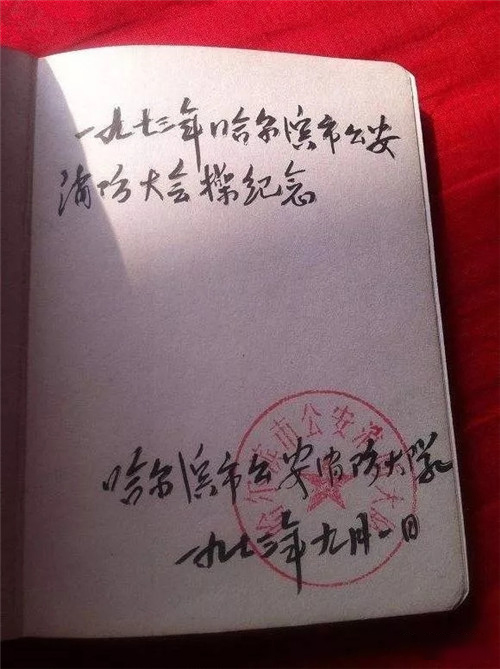 一九七三年哈尔滨市公安
消防大会操纪念
哈尔滨市公安消防大队
哈尔滨市公安消防大队
一九七三年九月一日